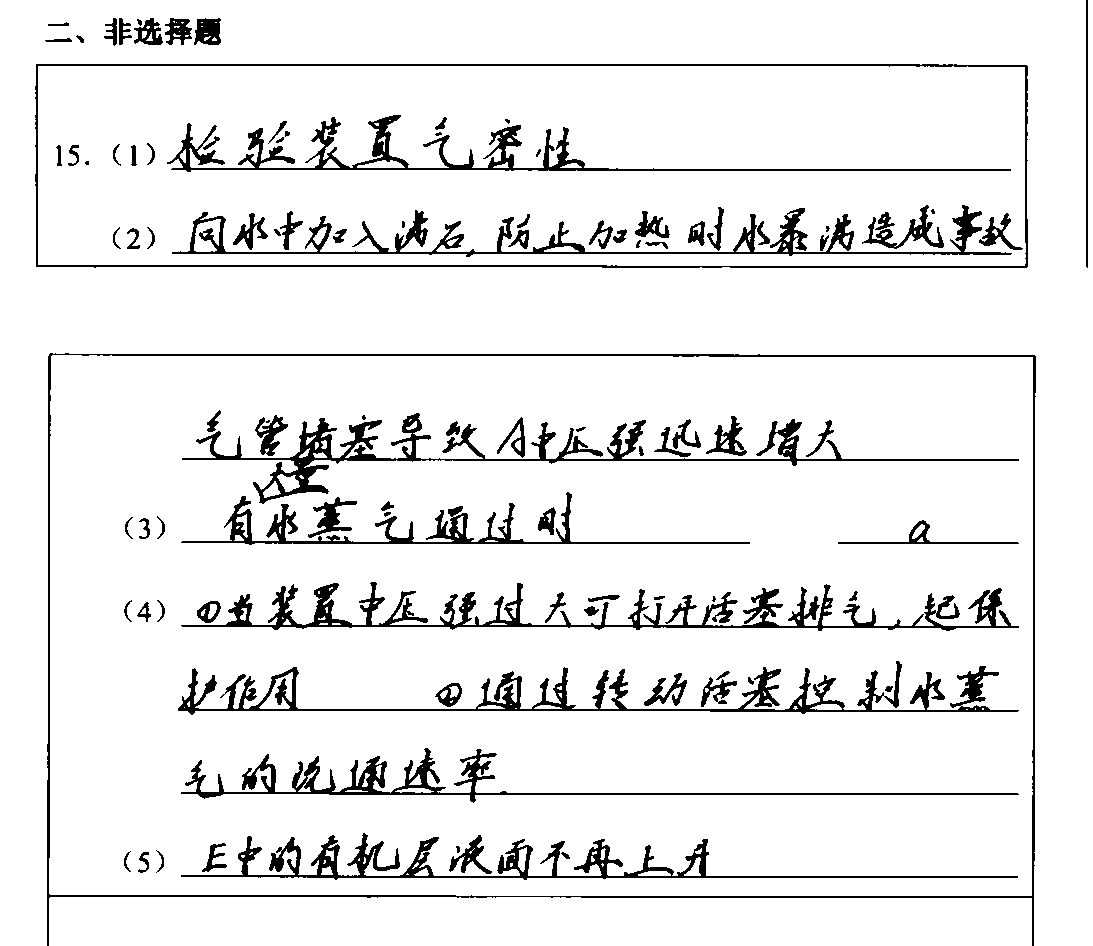 二、非选择题
15.（1）检验装置气密性
（2）向水中加入沸石,防止加热时水暴沸造成事故
气管堵塞导致A中压强迅速增大
大量
（3）有水蒸气通过时 a
（4）①当装置中压强过大可打开活塞排气,起保
护作用 ②通过转动活塞控制水蒸
气的流通速率.
（5）E中的有机层液面不再上升